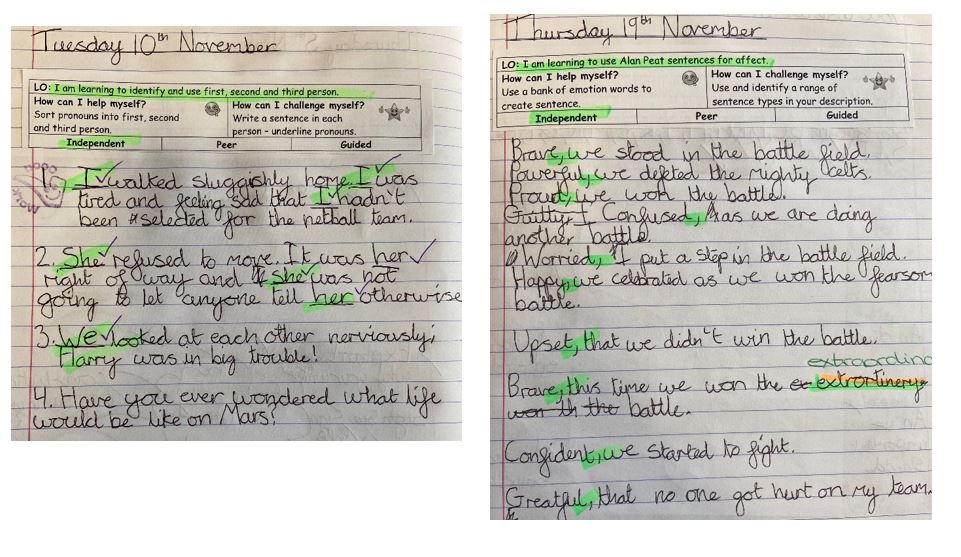 Tuesday 10th November
LO: I am learning to identify and use first, second and third person.
How can I help myself?
Sort pronouns into first, second
and third person.
How can I challenge myself?
Write a sentence in each
person - underline pronouns.
Independent
Peer
Guided
1. I walked sluggishly home. I was
tired and feeling sad that I hadn't
been selected for the netball team.
2. She refused to move. It was her
right of way and she was not
going to let anyone tell her otherwise
3. We looked at each other nerviously;
Harry was in big trouble!
4. Have you ever wondered what life
would be like on Mars?
Thursday 19th November
LO: I am learning to use Alan Peat sentences for affect.
How can I help myself?
Use a bank of emotion words to
create sentence.
How can I challenge myself?
Use and identify a range of
sentence types in your description.
Independent
Peer
Guided
Brave, we stood in the battle field.
Powerful, we defeted the mighty celts.
Proud, we won the battle.
Guilty, I Confused, as we are doing
another battle.
Worried, I put a step in the battle field.
Happy, we celebrated as we won the fearsom
battle.
Upset, that we didn't win the battle.
extraordina
Brave, this time we won the extrortinery
won th the battle.
Confident, we started to fight.
Greatful, that no one got hurt on my team.